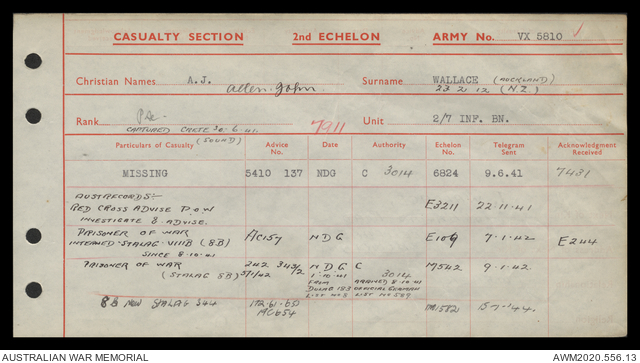 CASUALTY SECTION 2nd ECHELON ARMY No. VX 5810
Christian Names A.J. Allen John Surname WALLACE (AUCKLAND)
23 2 12 (N.Z.)
Rank Pte. 7911 Unit 2/7 INF. BN.
CAPTURED CRETE 30.6.41.
Particulars of Casualty Advice No. Date Authority Echelon No. Telegram Sent Acknowledgment Received
MISSING 5410 137 NDG C 3014 6824 9.6.41 7431
AUST RECORDS:-
RED CROSS ADVISE P.O.W E3211 22.11.41
INVESTIGATE & ADVISE.
PRISONER OF WAR AC157 NDG E109 7.1.42 E244
INTERNED STALAG VIIIB (8B)
SINCE 8.10.41
PRISONER OF WAR 242 N.D.G C 3014 M542 9.1.42
(STALAG 8B) 5/1/42 1.10.41 ARRIVED 8.10.41
FROM OFFICIAL GERMAN
DULAG 183 LIST No 589
LIST No 8
8B now STALAG 344 M1582
AC654
AUSTRALIAN WAR MEMORIAL AWM2020.556.13